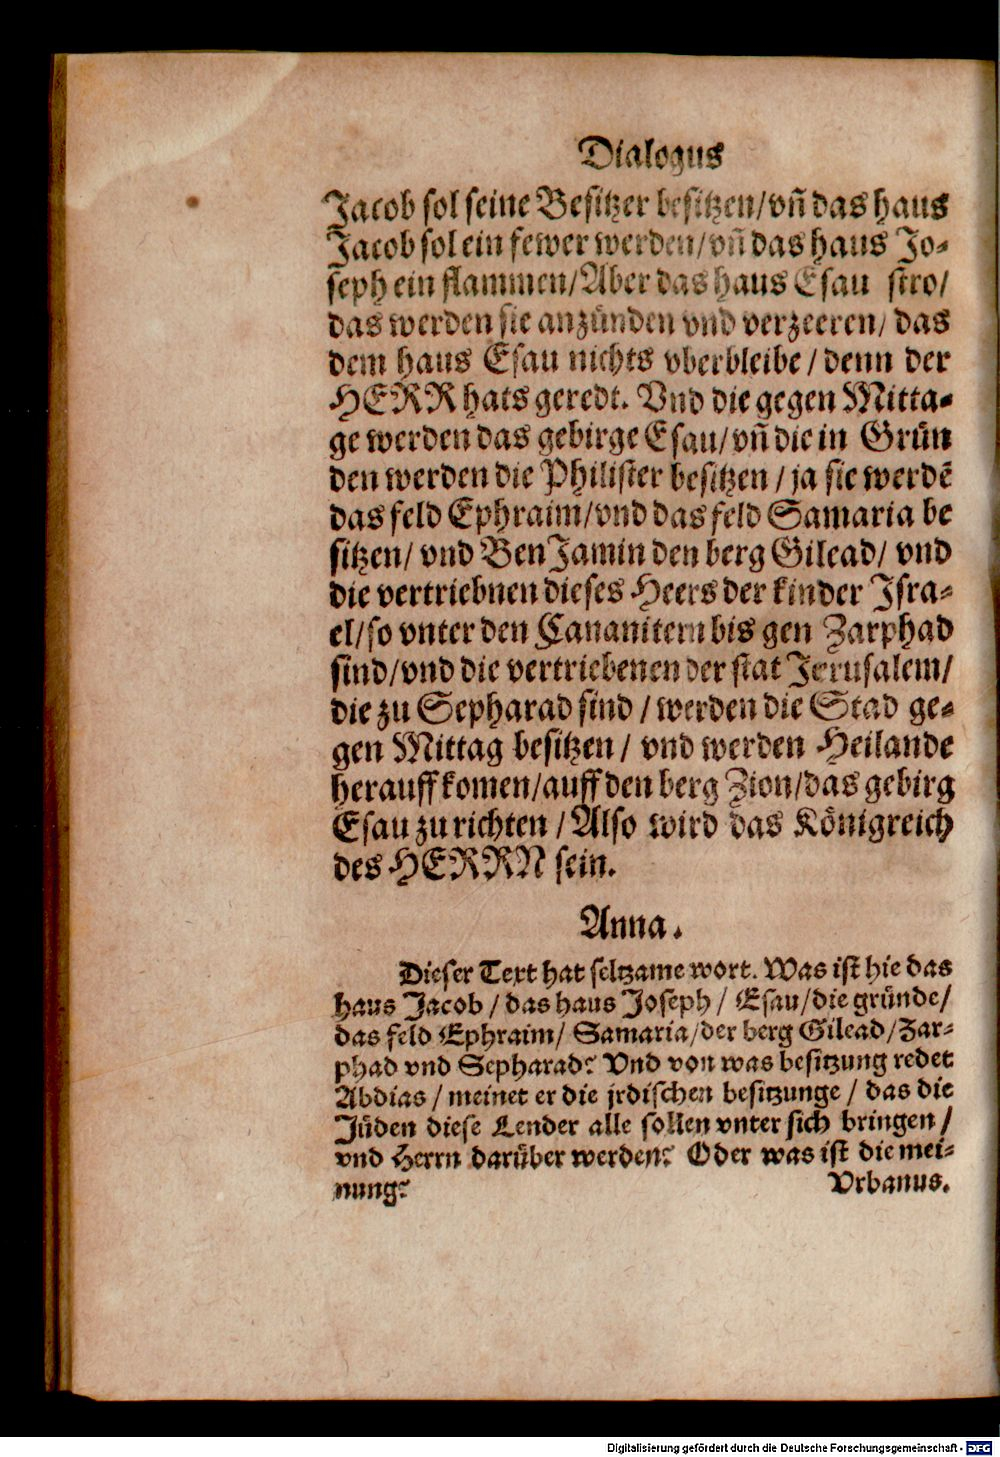 Dialogus
Jacob sol seine Besitzer besitzen/vñ das haus
Jacob sol ein fewer werden/vñ das haus Jo-
seph ein flammen/Aber das haus Esau stro/
das werden sie anzünden vnd verzeeren/ das
dem haus Esau nichts vberbleibe/ denn der
HERR hats geredt. Vnd die gegen Mitta-
ge werden das gebirge Esau/vñ die in Grün
den werden die Philister besitzen/ ja sie werdē
das feld Ephraim/vnd das feld Samaria be
sitzen/ vnd BenJamin den berg Gilead/ vnd
die vertriebnen dieses Heers der kinder Isra-
el/so vnter den Cananitern bis gen Zarphad
sind/vnd die vertriebenen der stat Jerusalem/
die zu Sepharad sind/ werden die Stad ge-
gen Mittag besitzen/ vnd werden Heilande
herauff komen/auff den berg Zion/das gebirg
Esau zu richten/Also wird das Königreich
des HERRN sein.
Anna.
Dieser Text hat seltzame wort. Was ist hie das
haus Jacob/das haus Joseph/ Esau/die gründe/
das feld Ephraim/ Samaria/der berg Gilead/Zar-
phad vnd Sepharad? Vnd von was besitzung redet
Abdias/ meinet er die jrdischen besitzunge/ das die
Jüden diese Lender alle sollen vnter sich bringen/
vnd Herrn darüber werden? Oder was ist die mei-
nung? Vrbanus.
Digitalisierung gefördert durch die Deutsche Forschungsgemeinschaft - DFG